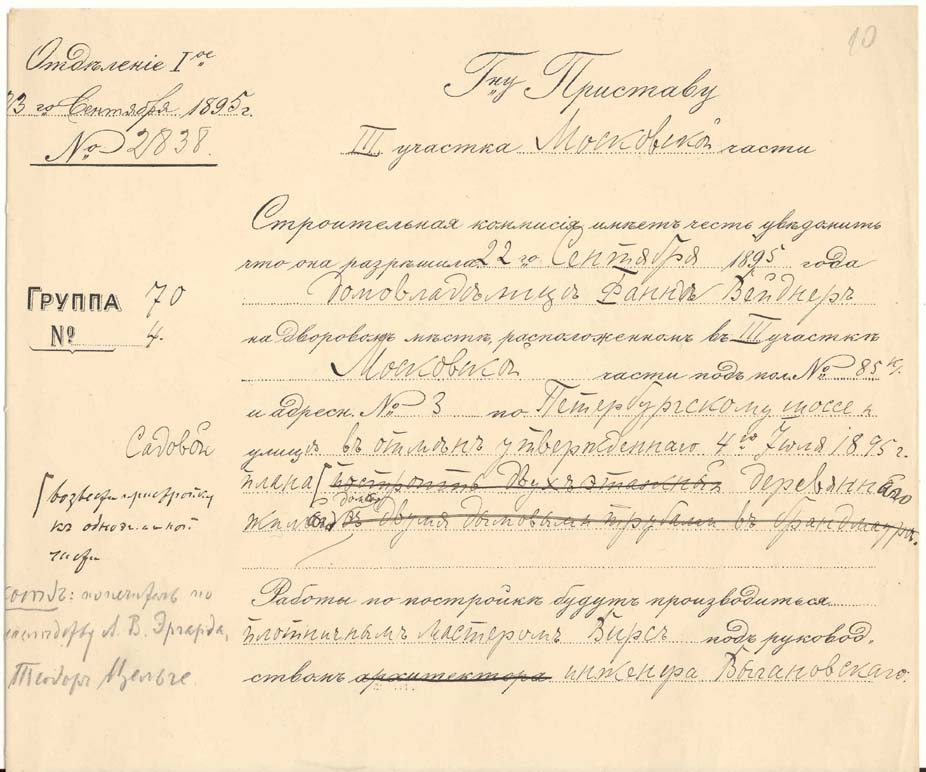 10
Отдѣленіе Iое
23 го Сентября 1895 г.
№ 2838.
Гну Приставу
III участка Московской части
Строительная коммисія имѣетъ честь увѣдомить
что она разрѣшила 22 го Сентября 1895 года
домовладѣлицѣ Фаннѣ Вейднеръ
на дворовомъ мѣстѣ, расположенномъ въ III участкѣ
Московской части подъ пол. № 85
и адресн. № 3 по Петербургскому шоссе и
улицѣ въ отмѣнъ утвержденнаго 4го Іюля 1895 г.
плана построить двухъэтажный деревяннаго
дома
жила съ двумя дымовыми трубами въ брандмауръ.
Работы по постройкѣ будутъ производиться
плотничнымъ мастеромъ Бирсъ подъ руковод.
ствомъ архитектора инженера Выгановскаго.
ГРУППА 70
№ 4.
Садовой
возвести пристройку
къ одноэтажной
части
попечитель по
А. В. Эргарда,
Теодоръ